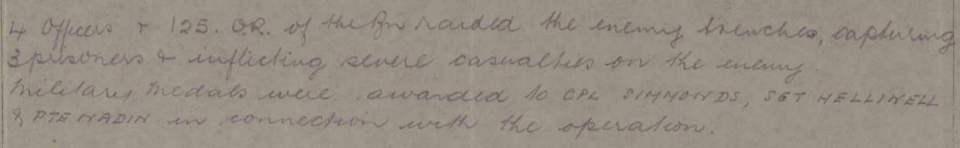 4 Officers & 125. O.R. of the Bn raided the enemy trenches, capturing
3 prisoners & inflicting severe casualties on the enemy.
Military Medals were awarded to CPL SIMMONDS, SGT HELLIWELL
& PTE NADIN in connection with the operation.